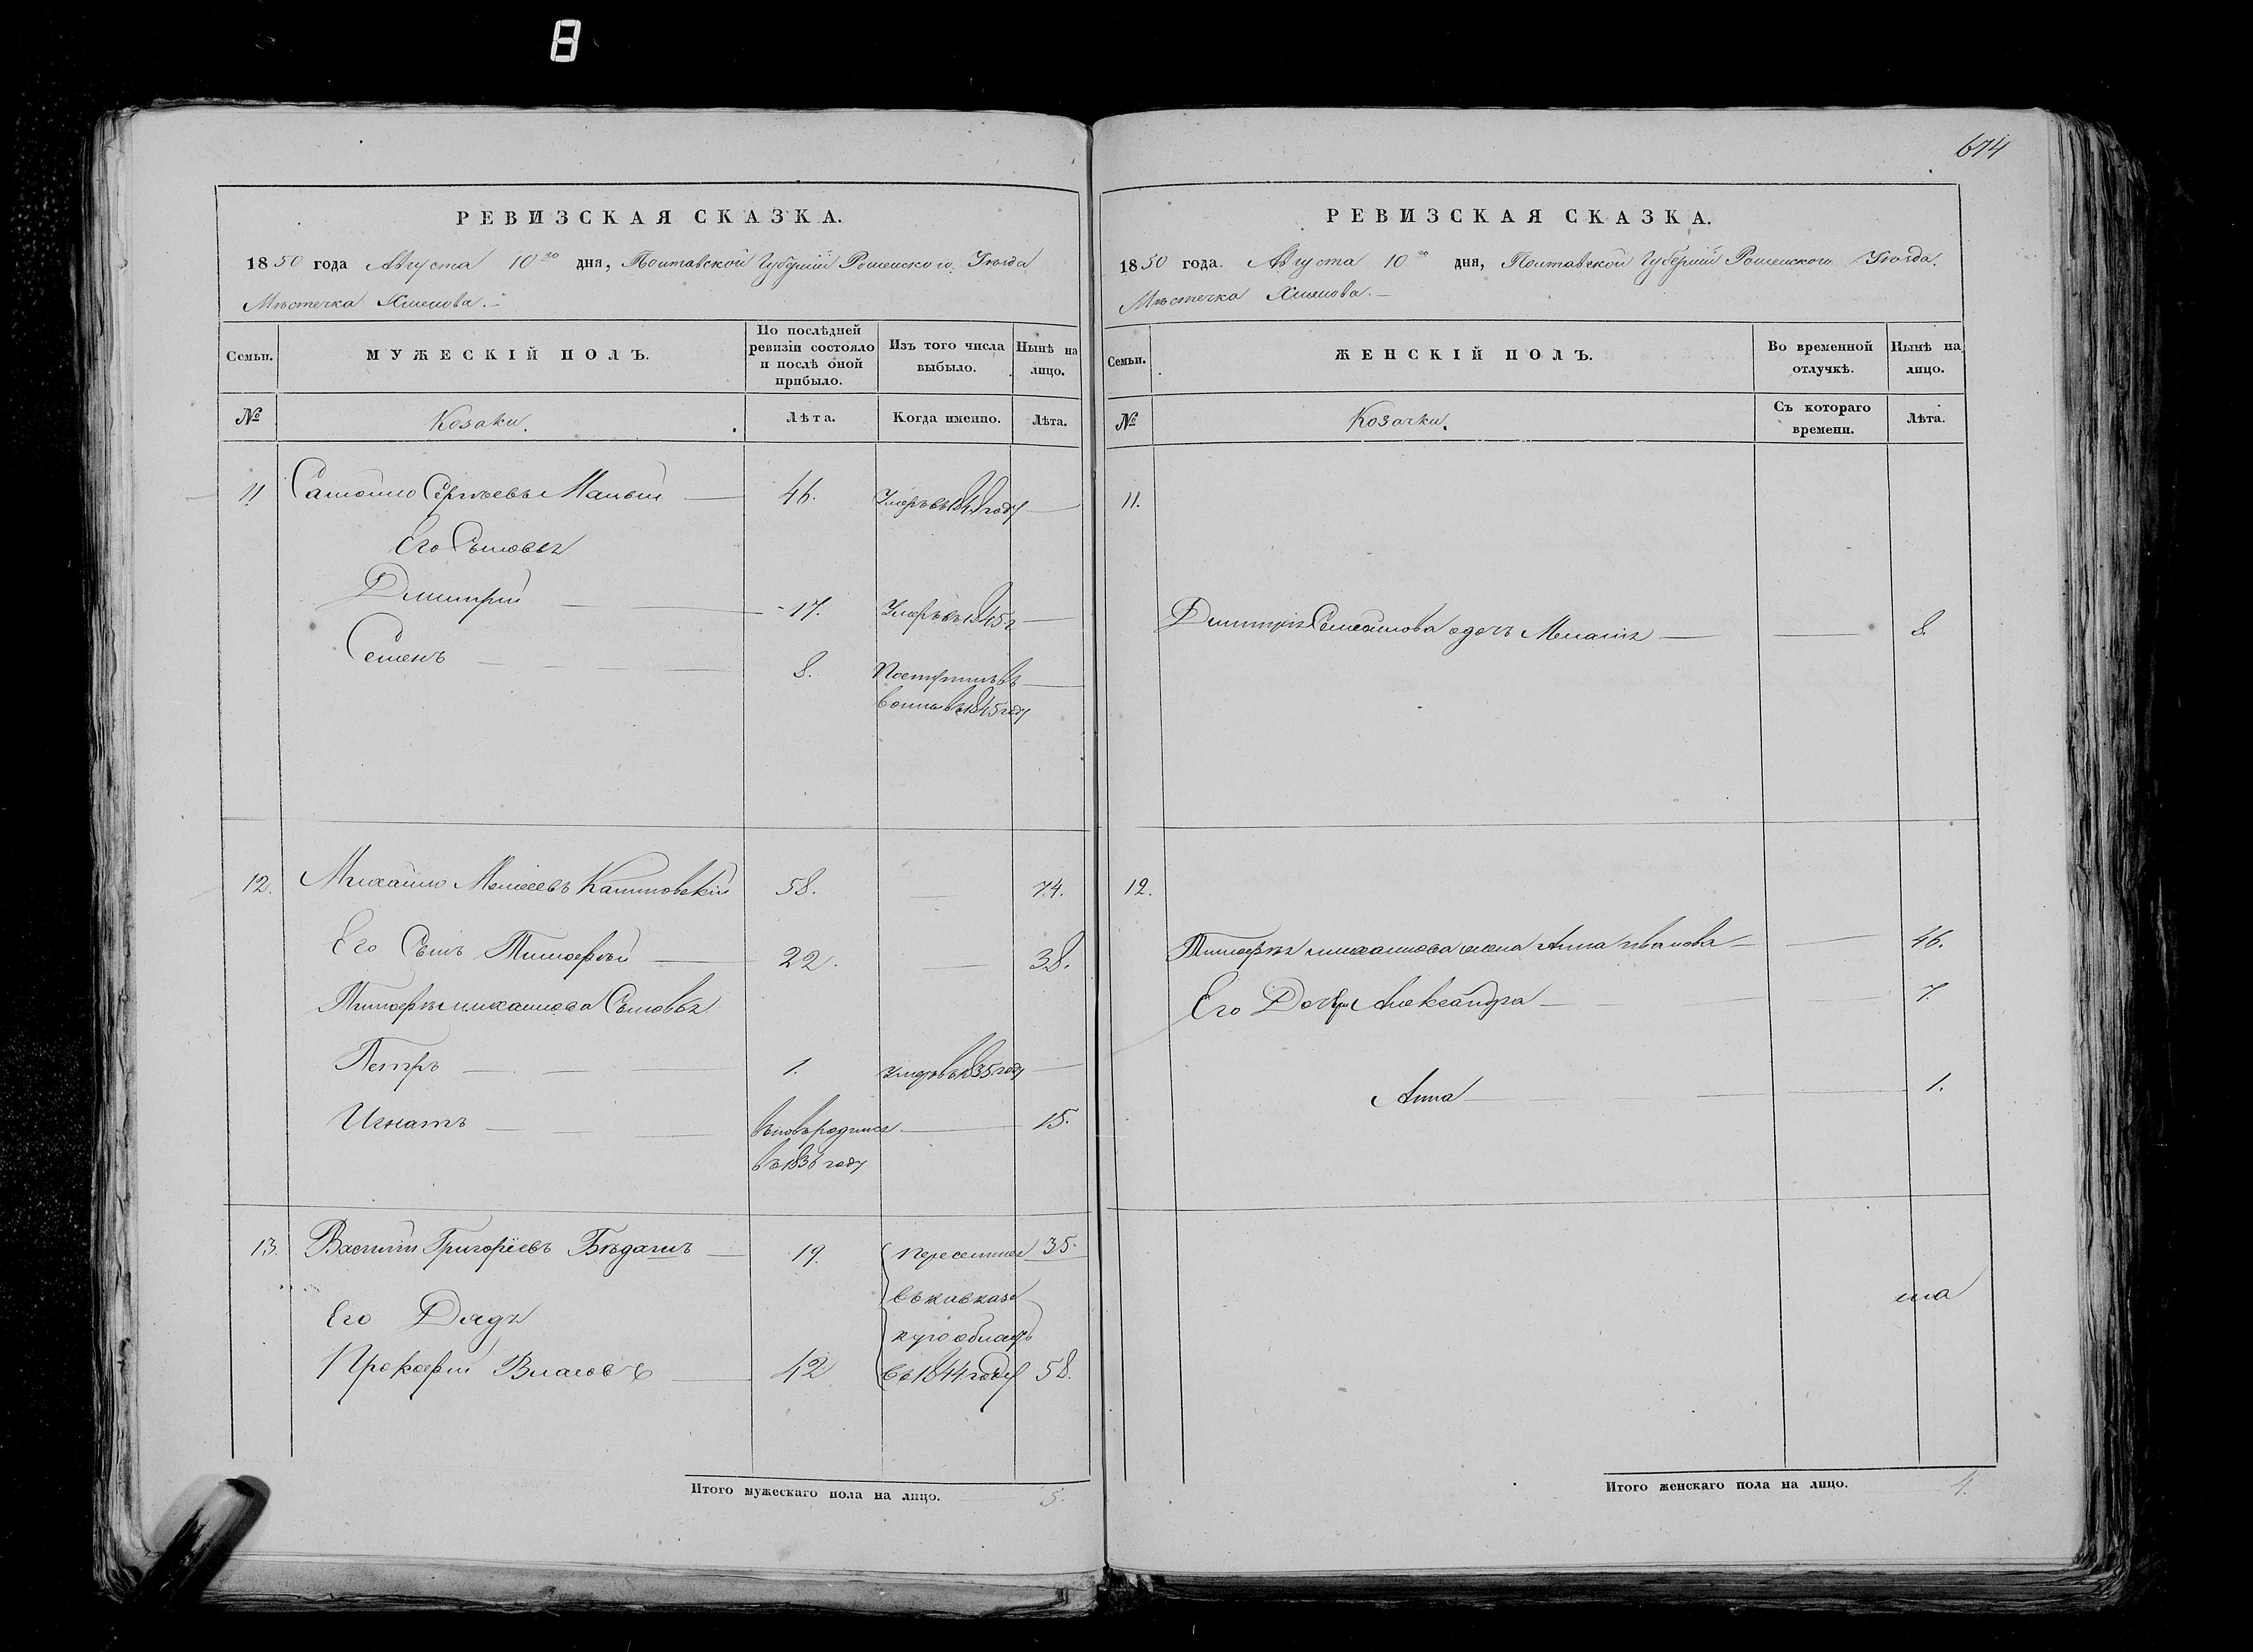 8
674
РЕВИЗСКАЯ СКАЗКА.
1850 года Августа 10го дня, Полтавской Губерніи Роменского Уѣзда
Мѣстечка Хмелова.
Семьи.
МУЖЕСКІЙ ПОЛЪ.
По послѣдней ревизіи состояло и послѣ оной прибыло.
Изъ того числа выбыло.
Нынѣ на лицо.
№
Козаки.
Лѣта.
Когда именно.
Лѣта.
11 Самойло Сергѣевъ 46. Умеръ въ году
Его Сыновья
Дмитрій 17. Умеръ въ 1845 г
Семенъ 8. Поступилъ въ
въ 1845 году
12. Михайло Моисеевъ 58. 74.
Его Сынъ Тимофѣй 22. 38.
Тимофѣя михайлова Сыновья
Петръ 1. Умеръ въ 1835 году
Игнатъ вновь родился 15.
въ 1836 году
13. Василій Григоріевъ 19. Переселился 35.
въ кавказ
кую область
Его Дядя
Прокофій Власовъ 42 въ 1844 году 58.
Итого мужескаго пола на лицо. 5.
РЕВИЗСКАЯ СКАЗКА.
1850 года. Августа 10го дня, Полтавской Губерніи Роменского Уѣзда.
Мѣстечка Хмелова.
Семьи.
ЖЕНСКІЙ ПОЛЪ.
Во временной отлучкѣ.
Нынѣ на лицо.
№
Козачки.
Съ котораго времени.
Лѣта.
11.
Дмитрія Самойлова дочь 8.
12.
Тимофѣя михайлова жена Анна иванова 46.
Его Дочери Александра 7.
Анна 1.
Итого женскаго пола на лицо. 4.